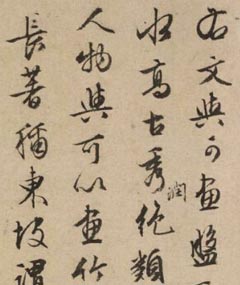 右文與可畫盤
水高古秀潤絕類
人物與可以畫竹
長著稱東坡謂